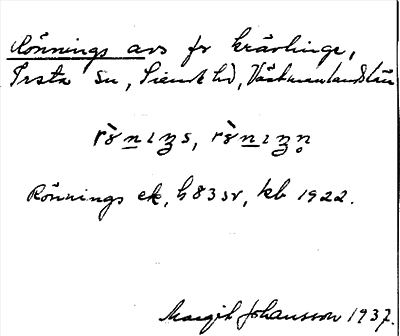 Rönnings avs fr krävlinge,
Irsta sn, Siende hd, Västmanlands län
Rönnings ek, h 83 sv, kb 1922.
Margit Johansson 1937.